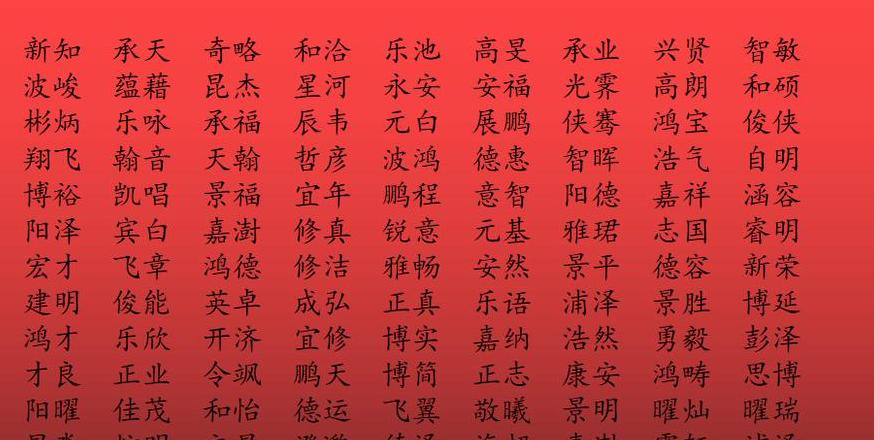 新知 承天 奇略 和洽 乐池 高旻 承业 兴贤 智敏
波峻 蕴藉 昆杰 星河 永安 安福 光霁 高朗 和硕
彬炳 乐咏 承福 辰韦 元白 展鹏 侠骞 鸿宝 俊侠
翔飞 翰音 天翰 哲彦 波鸿 德惠 智晖 浩气 自明
博裕 凯唱 景福 宜年 鹏程 意智 阳德 嘉祥 涵容
阳泽 宾白 嘉澍 修真 锐意 元基 雅珺 志国 睿明
宏才 飞章 鸿德 修洁 雅畅 安然 景平 德容 新荣
建明 俊能 英卓 成弘 正真 乐语 浦泽 景胜 博延
鸿才 乐欣 开济 宜修 博实 嘉纳 浩然 勇毅 彭泽
才良 正业 令飒 鹏天 博简 正志 康安 鸿畴 思博
阳曜 佳茂 和怡 德运 飞翼 敬曦 景明 曜灿 曜瑞